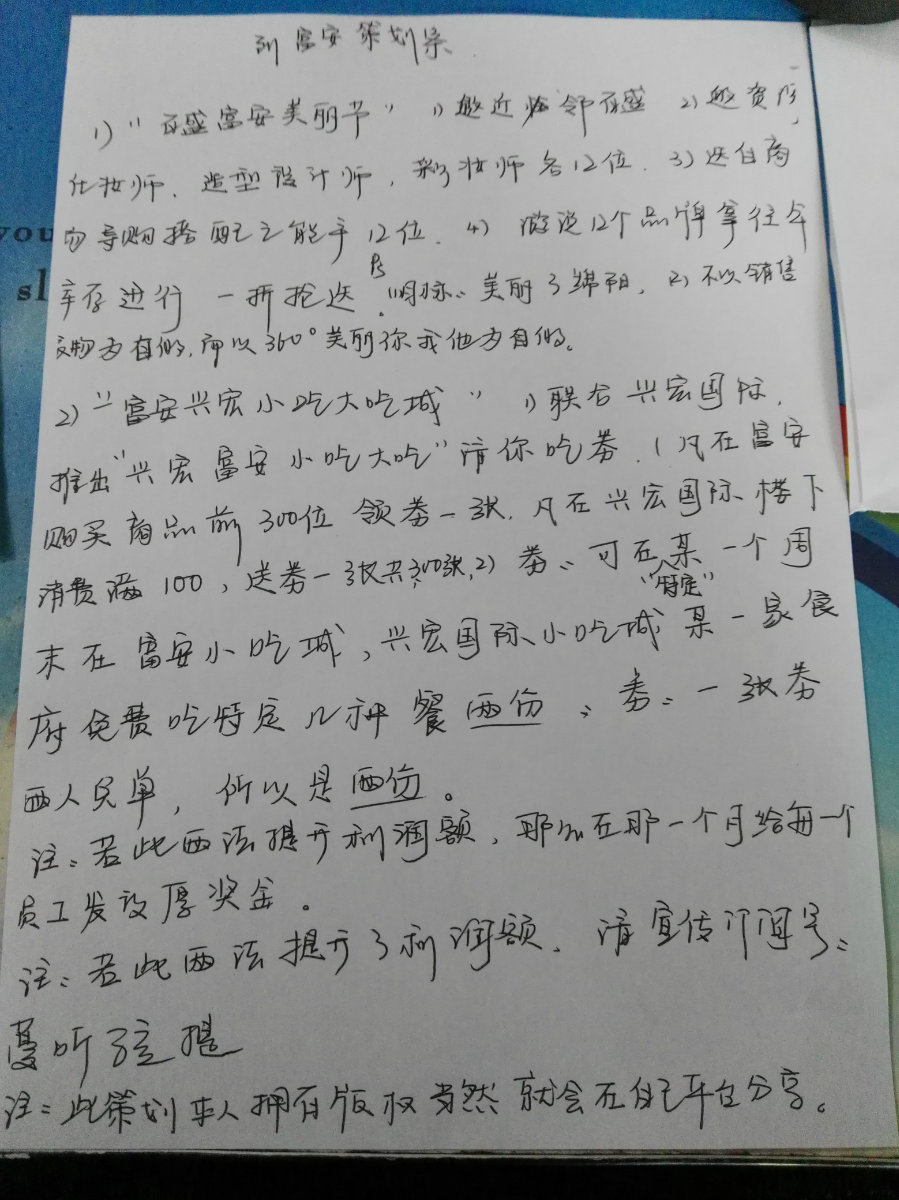 到富安策划案
1)“百盛富安美丽节” 1)邀近临邻百盛 2)邀资厚
化妆师、造型设计师,彩妆师各12位. 3)送住商
力导购搭配之能手12位. 4) 游说12个品牌拿往年
库存进行一折抢送。
Ps “1)目标:美丽了绵阳, 2)不以销售
为目的,而以360°美丽你我他为目的。
2)“富安兴宏小吃大吃城” 1)联合兴宏国际,
推出“兴宏富安小吃大吃”请你吃券.(凡在富安
购买商品前300位领券一张.凡在兴宏国际楼下
消费满100,送券一张共300张,2)券:可在某一个周
“特定”
末在富安小吃城,兴宏国际小吃城某一家食
府免费吃特定几种餐两份、券:一张券
两人免单,所以是两份。
注:若此两法提升利润额,那么在那一个月给每一个
员工发放厚奖金。
注:若此两法提升了利润额.请宣传订阅号:
蔓听弦提
注:此策划本人拥有版权当然就会在自己平台分享。
you
sl